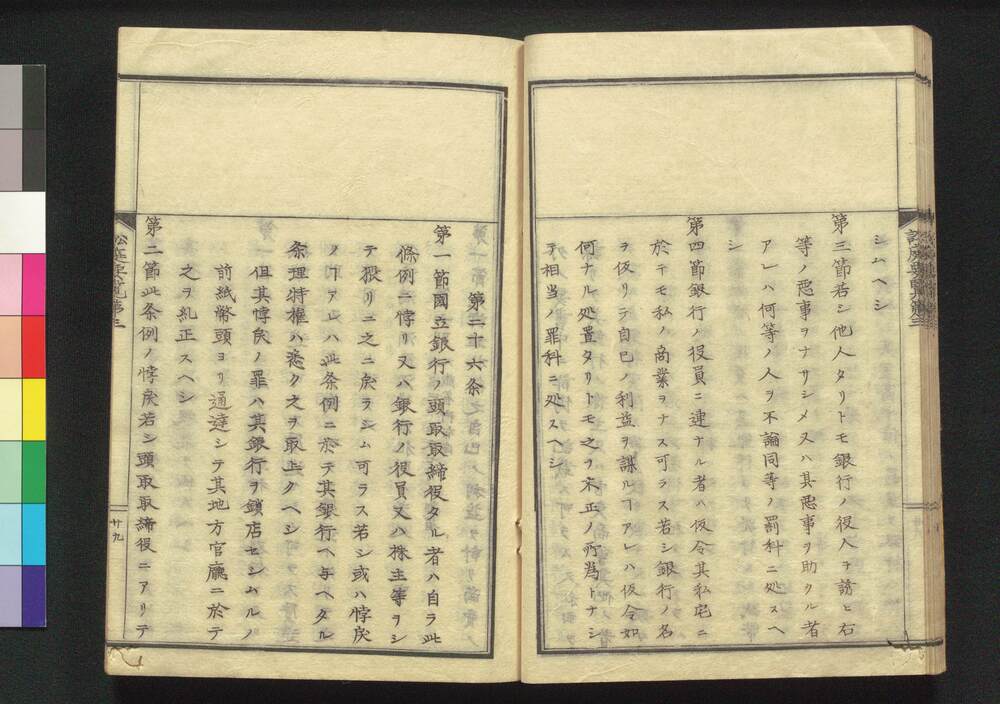 シムヘシ
第三節若シ他人タリトモ銀行ノ役人ヲ誘ヒ右
等ノ悪事ヲナサシメ又ハ其悪事ヲ助クル者
アレハ何等ノ人ヲ不論同等ノ罰科ニ処スヘ
シ
第四節銀行ノ役員ニ連ナル者ハ仮令其私宅ニ
於テモ私ノ商業ヲナス可ラス若シ銀行ノ名
ヲ仮リテ自己ノ利益ヲ謀ルヿアレハ仮令如
何ナル処置タリトモ之ヲ不正ノ所為トナシ
テ相当ノ罪科ニ処スヘシ
第二十六条
第一節國立銀行ノ頭取取締役タル者ハ自ラ此
條例ニ悖リ又ハ銀行ノ役員又ハ株主等ヲシ
テ猥リニ之ニ戻ラシム可ラス若シ或ハ悖戻
ノヿアレハ此条例ニ於テ其銀行ヘ与ヘタル
条理特権ハ悉ク之ヲ取上クヘシ
但其悖戻ノ罪ハ其銀行ヲ鎖店セシムルノ
前紙幣頭ヨリ通達シテ其地方官廳ニ於テ
之ヲ糺正スヘシ
第二節此条例ノ悖戻若シ頭取取締役ニアリテ
訟庭要覧第三
廿九